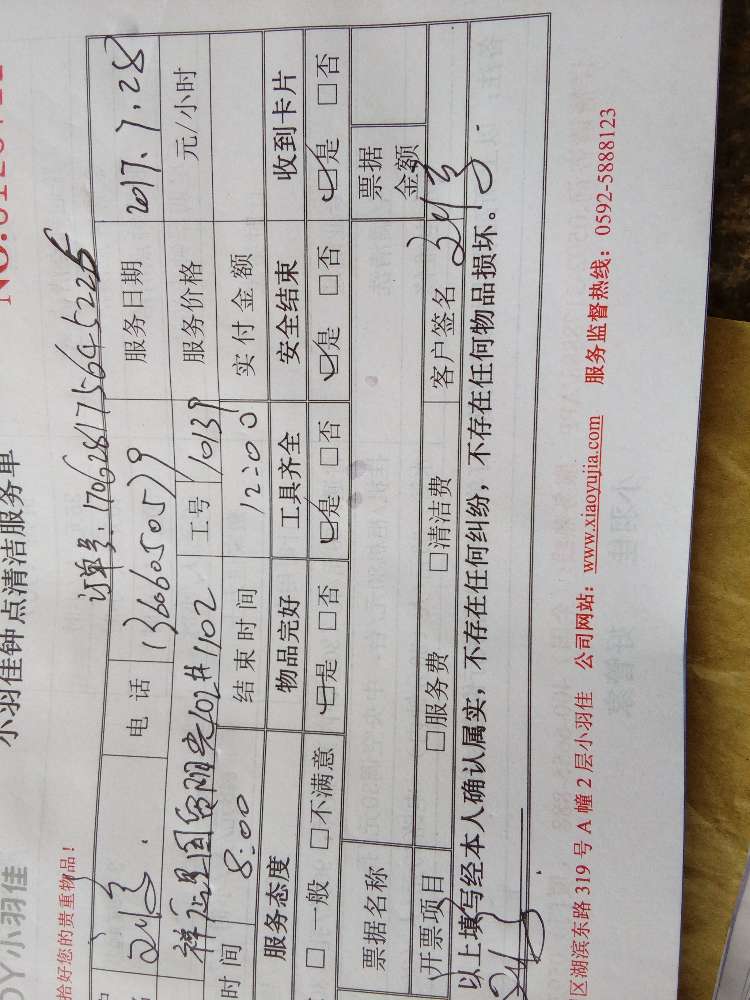 NO.
OY小羽佳
小羽佳钟点清洁服务单
拾好您的贵重物品！
订单号：17062817564522
电 话 服务日期 2017.7.28
国贸阳光102#1102 工号 10139 服务价格 元/小时
时间 8:00 结束时间 12:00 实付金额
服务态度 物品完好 工具齐全 安全结束 收到卡片
□ 一般 □不满意 ☑是 □否 ☑是 □否 ☑是 □否 ☑是 □否
票据名称 票据金额
开票项目 □服务费 □清洁费 客户签名
以上填写经本人确认属实，不存在任何纠纷，不存在任何物品损坏。
区湖滨东路 319 号 A 幢 2 层小羽佳 公司网站：www.xiaoyujia.com 服务监督热线：0592-5888123